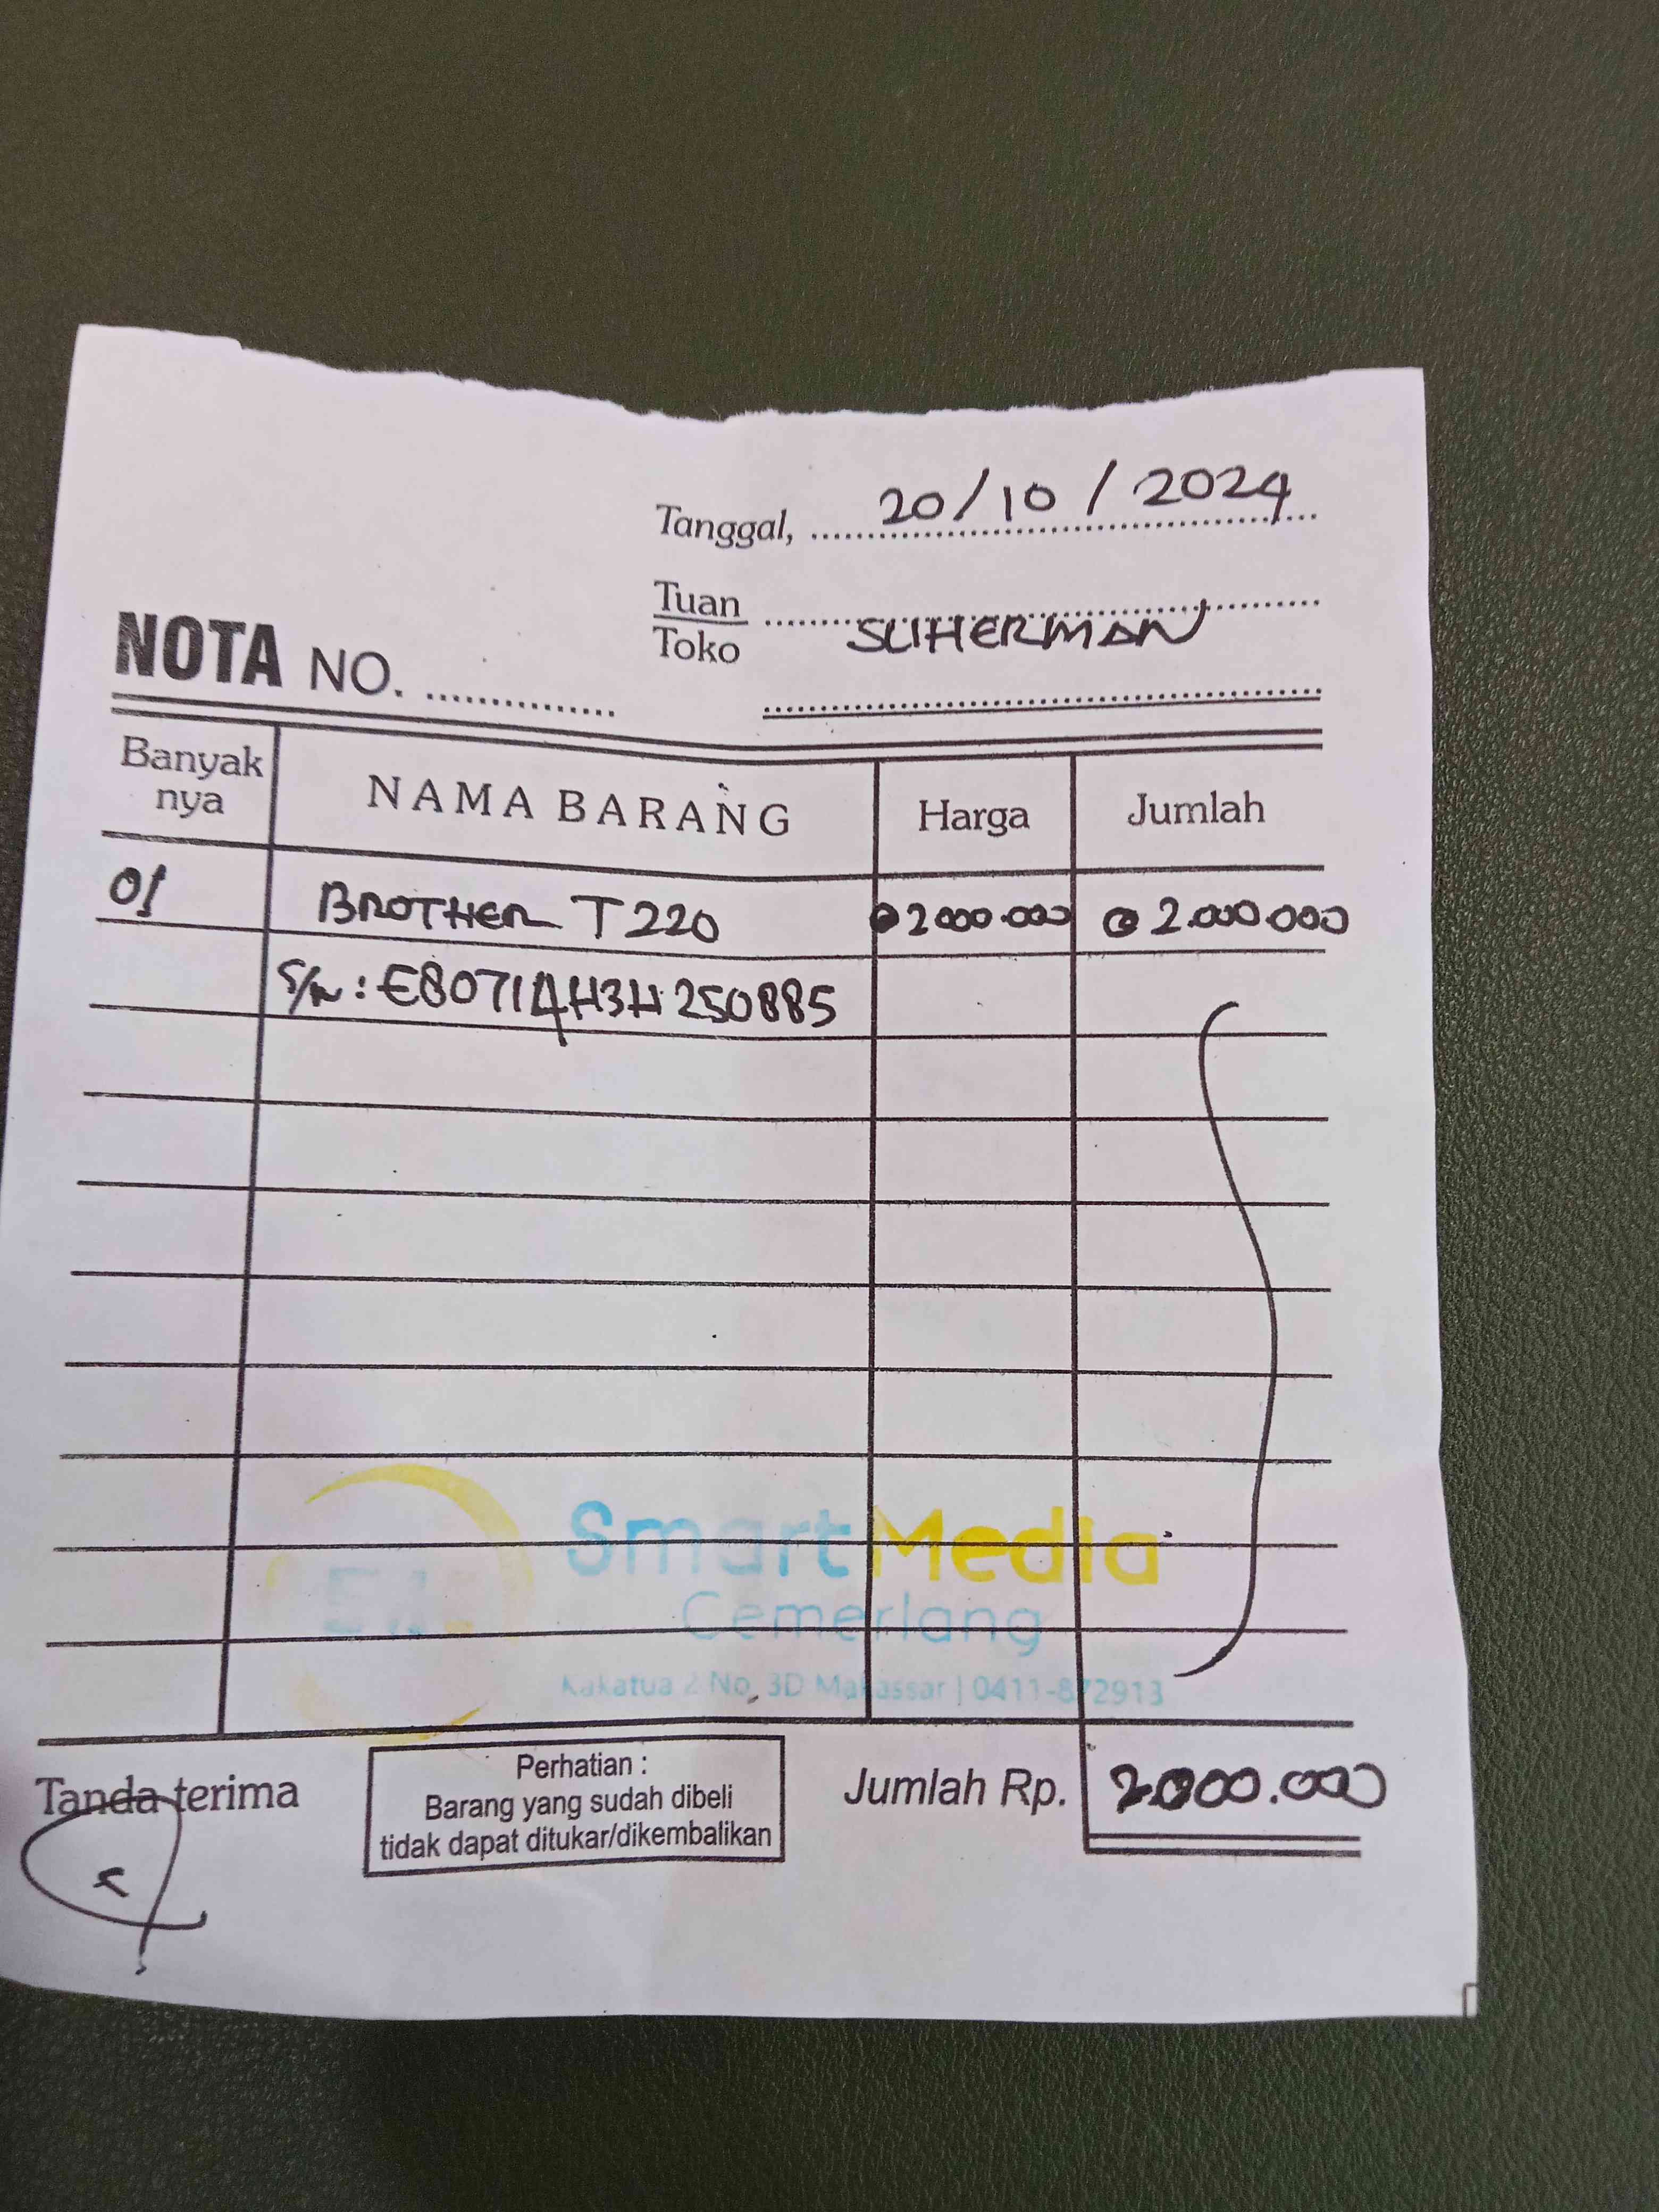 Tanggal, 20/10/2024
Tuan
Toko
SUHERMAN
NOTA NO.
Banyak nya NAMA BARANG Harga Jumlah
01 BROTHER T220 @ 2000.000 @ 2.000.000
S/N : E80714H3H250885
SmartMedia
Cemerlang
Kakatua 2 No, 3D Makassar | 0411-872913
Tanda terima
Perhatian :
Barang yang sudah dibeli
tidak dapat ditukar/dikembalikan
Jumlah Rp. 2.000.000